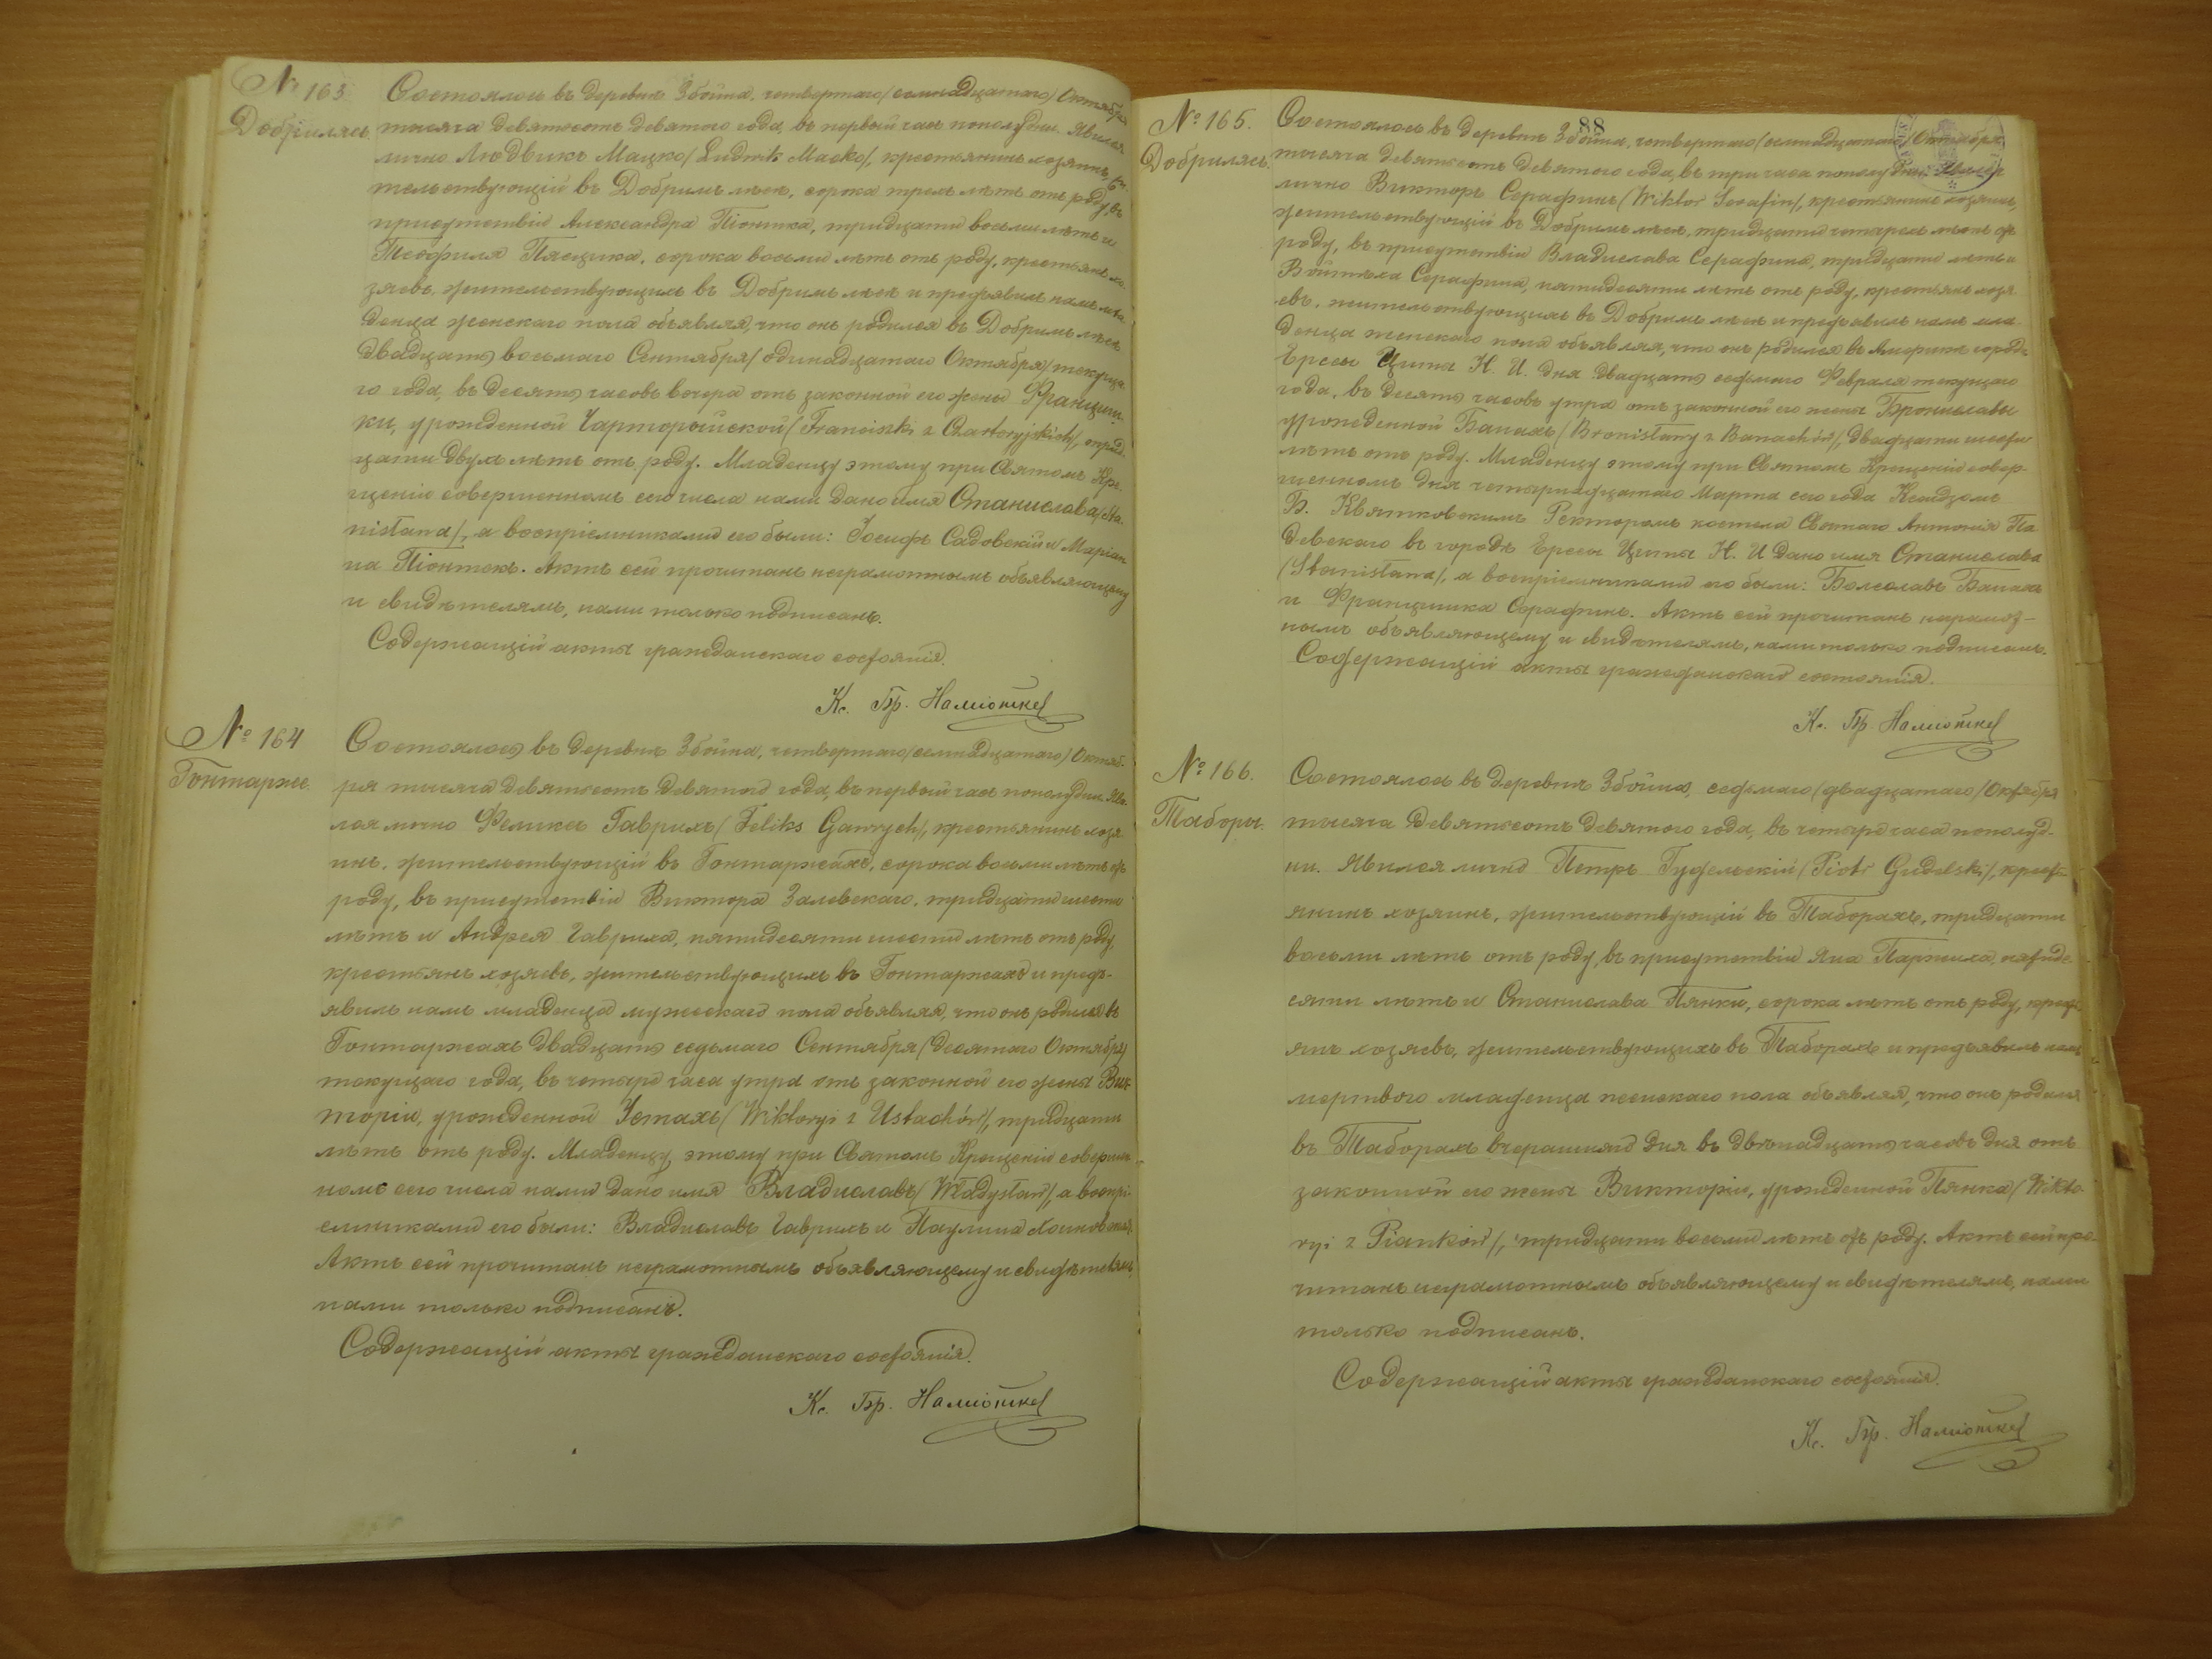 № 163
Добрилясъ
Состоялось въ деревнѣ Збойна, четвертаго/семнадцатаго/Октября
тысяча девятьсотъ девятого года, въ первый часъ пополудни. Явился
лично Людвикъ Мацко/Ludwik Macko/, крестьянинъ хозяинъ, жи-
тельствующій въ Добрымъ лясѣ, сорока трехъ лѣтъ отъ роду, въ
присутствіи Александра Піонтка, тридцати восьми лѣтъ и
Теофиля Пясцика, сорока восьми лѣтъ отъ роду, крестьянъ хо-
зяевъ, жительствующихъ въ Добрымъ лясѣ и предъявилъ намъ мла-
денца женскаго пола объявляя, что онъ родился въ Добрымъ лясѣ
двадцать восьмаго Сентября/одинадцатаго Октября/текуща-
го года, въ десять часовъ вечера отъ законной его жены Францишки-
ки, урожденной Чарторыйской/Franciszki z Czartoryjskich/, трид-
цати двухъ лѣтъ отъ роду. Младенцу этому при Святомъ Кре-
щеніи совершенномъ сего числа нами дано имя Станислава/Sta-
nisława/, а воспріемниками его были: Іосифъ Садовскій и Маріан-
на Піонтекъ. Актъ сей прочитанъ неграмотнымъ объявляющему
и свидѣтелямъ, нами только подписанъ.
Содержащій акты гражданскаго состоянія.
Кс. Бр. Наміотке
№ 164
Гонтарже.
Состоялось въ деревнѣ Збойна, четвертаго/семнадцатаго/Октяб-
ря тысяча девятьсотъ девятого года, въ первый часъ пополудни. Яви-
лся лично Феликсъ Гаврихъ/Feliks Gawrych/, крестьянинъ хозя-
инъ, жительствующій въ Гонтаржахъ, сорока восьми лѣтъ отъ
роду, въ присутствіи Виктора Залевскаго, тридцати шести
лѣтъ и Андрея Гавриха, пятидесяти шести лѣтъ отъ роду,
крестьянъ хозяевъ, жительствующихъ въ Гонтаржахъ и предъ-
явилъ намъ младенца мужескаго пола объявляя, что онъ родился въ
Гонтаржахъ двадцать седьмаго Сентября/десятаго Октября/
текущаго года, въ четыре часа утра отъ законной его жены Вик-
торіи, урожденной Устахъ/Wiktoryi z Ustachów/, тридцати
лѣтъ отъ роду. Младенцу этому при Святомъ Крещеніи совершен-
номъ сего числа нами дано имя Владиславъ/Władysław/, а воспрі-
емниками его были: Владиславъ Гаврихъ и Паулина
Актъ сей прочитанъ неграмотнымъ объявляющему и свидѣтелямъ,
нами только подписанъ.
Содержащій акты гражданскаго состоянія.
Кс. Бр. Наміотке
88
№ 165.
Добрилясъ.
Состоялось въ деревнѣ Збойна, четвертаго/семнадцатаго/Октября
тысяча девятьсотъ девятого года, въ три часа пополудни. Явился
лично Викторъ Серафинъ/Wiktor Serafin/, крестьянинъ хозяинъ,
жительствующій въ Добрымъ лясѣ, тридцати четырехъ лѣтъ отъ
роду, въ присутствіи Владислава Серафина, тридцати лѣтъ и
Войтѣха Серафина, пятидесяти лѣтъ отъ роду, крестьянъ хозя-
евъ, жительствующихъ въ Добрымъ лясѣ и предъявилъ намъ мла-
денца женскаго пола объявляя, что онъ родился въ Америкѣ городѣ
Ерсеы Циты Н. И. дня двадцать седьмаго Февраля текущаго
года, въ десять часовъ утра отъ законной его жены Брониславы
урожденной Банахъ/Bronisławy z Banachów/, двадцати шести
лѣтъ отъ роду. Младенцу этому при Святомъ Крещеніи совер-
шенномъ дня четырнадцатаго Марта сего года Ксендзомъ
Б. Квятковскимъ Ректоромъ костела Святаго Антонія Па-
девскаго въ городѣ Ерсеы Циты Н. И дано имя Станислава
/Stanisława/, а воспріемниками его были: Болеславъ Банахъ
и Францишка Серафинъ. Актъ сей прочитанъ неграмот-
нымъ объявляющему и свидѣтелямъ, нами только подписанъ.
Содержащій акты гражданскаго состоянія.
Кс. Бр. Наміотке
№ 166.
Таборы.
Состоялось въ деревнѣ Збойна, седьмаго/двадцатаго/Октября
тысяча девятьсотъ девятого года, въ четыре часа пополуд-
ни. Явился лично Петръ Гудельскій/Piotr Gudelski/, кресть-
янинъ хозяинъ, жительствующій въ Таборахъ, тридцати
восьми лѣтъ отъ роду, въ присутствіи Яна Пархиха, пятиде-
сяти лѣтъ и Станислава Пянки, сорока лѣтъ отъ роду, кресть-
янъ хозяевъ, жительствующихъ въ Таборахъ и предъявилъ намъ
мертваго младенца женскаго пола объявляя, что онъ родился
въ Таборахъ вчерашняго дня въ двѣнадцать часовъ дня отъ
законной его жены Викторіи, урожденной Пянка/Wikto-
ryi z Pianków/, тридцати восьми лѣтъ отъ роду. Актъ сей про-
читанъ неграмотнымъ объявляющему и свидѣтелямъ, нами
только подписанъ.
Содержащій акты гражданскаго состоянія.
Кс. Бр. Наміотке